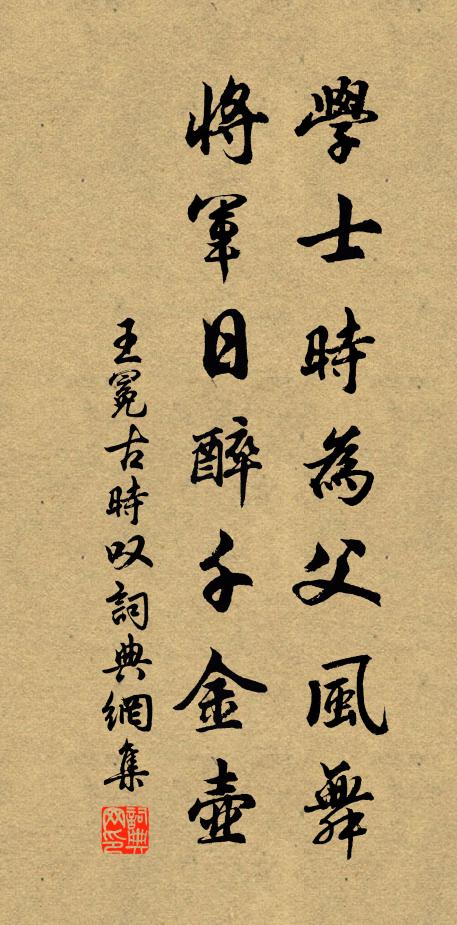 學士時為父風舞
將軍日醉千金壺
王冕古時叹詞典網集
詞典网印